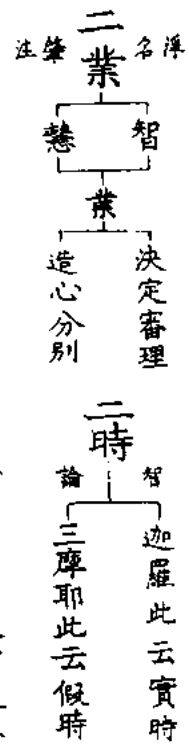 二業
淨名
肇注
智
慧
業
決定審理
造心分別
二時
智
論
迦羅此云實時
三摩耶此云假時